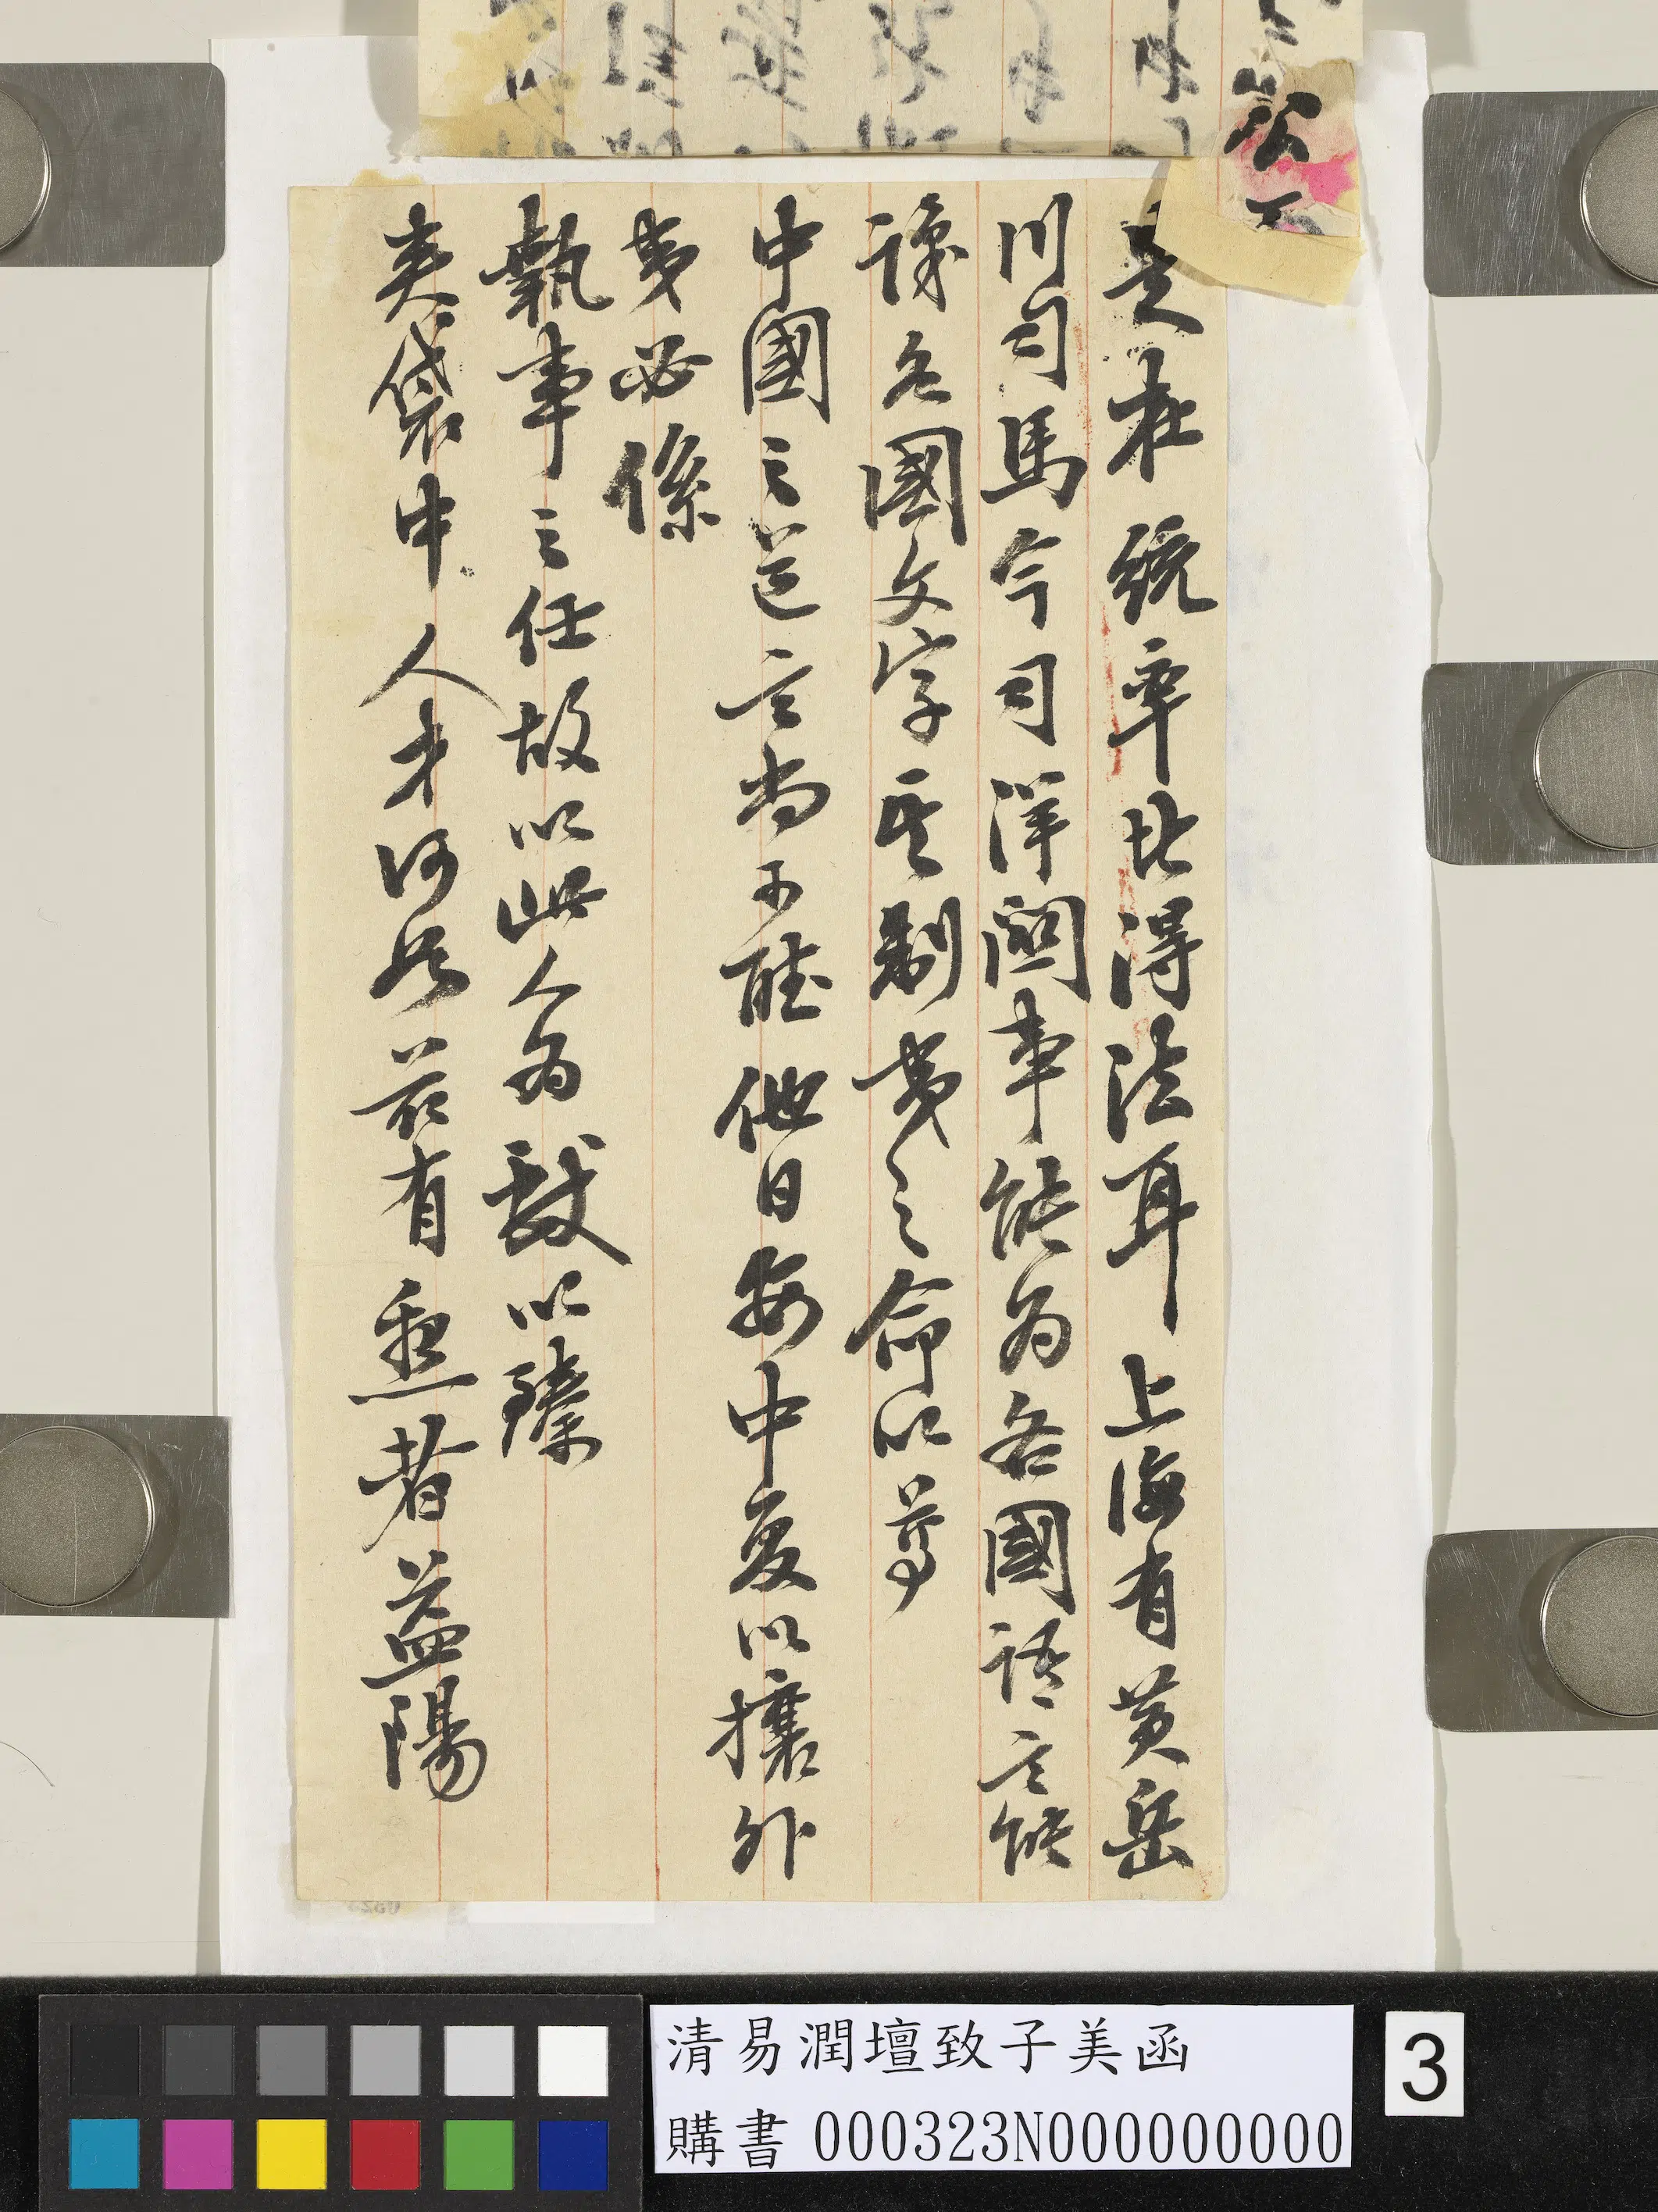 是在統率比得法耳上海有黃岳
川司馬今司洋關事能為各國語言能
識各國文字至制夷之命以尊
中國之道言尚可聽他日安中夏以攘外
夷必係
執事之任故以此人為獻以臻
夾袋中人才何如茲有懇者益陽
清易潤壇致子美函
購書 000323N000000000
3